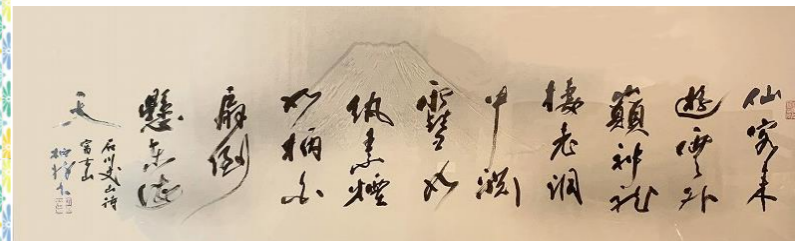 仙客来
遊雲外
巔神龍
棲老洞
中淵
雪如
紈素煙
如柄白
扇倒
懸東海
天
石川丈山詩
富士山